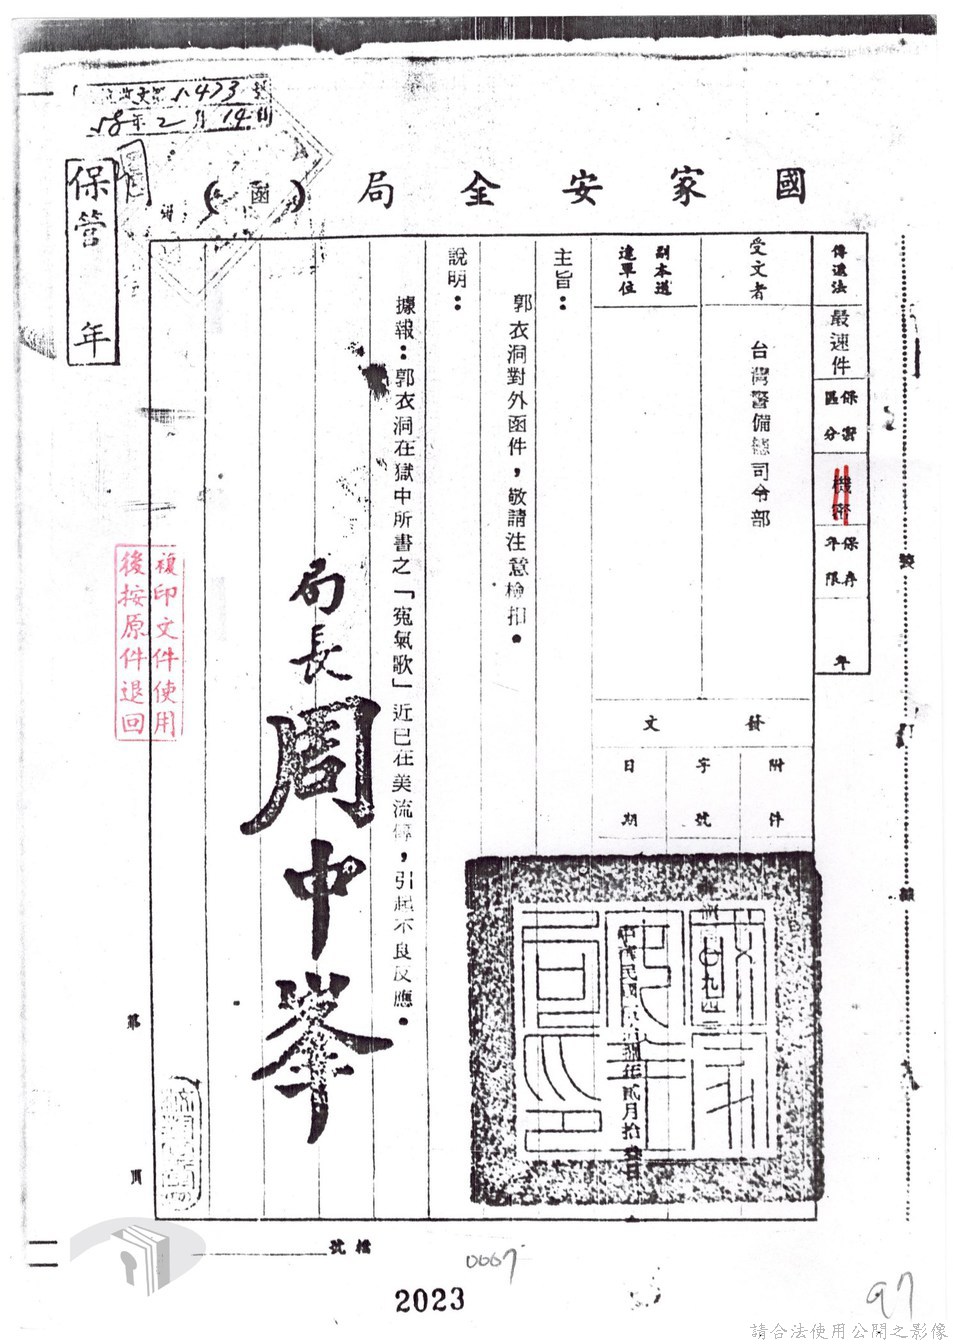 收文第51473號
58年2月14日
保管 年
國家安全局(函)
傳遞法 最速件
保密區分 機密
保存年限 年
受文者 台灣警備總司令部
副本送達單位
發文
附件
字號
日期
中華民國
年貳月拾
主旨：
郭衣洞對外函件，敬請注意檢扣。
說明：
據報：郭衣洞在獄中所書之「冤氣歌」近已在美流傳，引起不良反應。
局長 周中峯
複印文件使用
後按原件退回
裝
訂
線
第
頁
檔號
0007
2023
97
請合法使用公開之影像